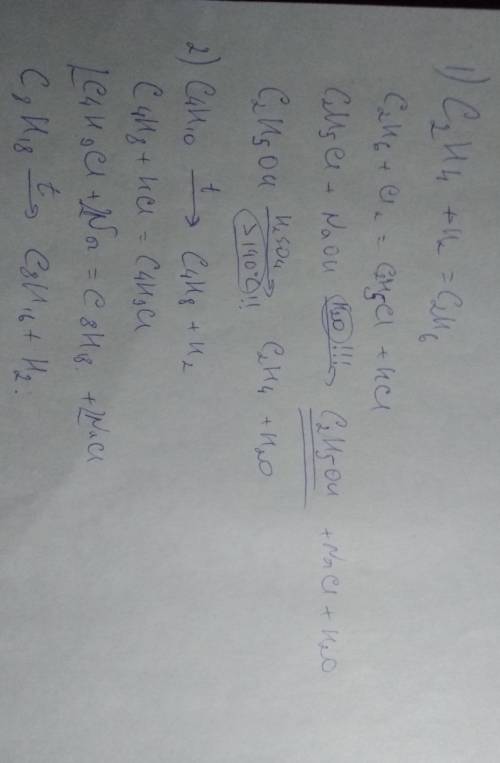 1) C2H4 + H2 = C2H6
C2H6 + Cl2 = C2H5Cl + HCl
C2H5Cl + NaOH H2O!!! → C2H5OH + NaCl + H2O
C2H5OH H2SO4 >140°C!!! → C2H4 + H2O
2) C4H10 t → C4H8 + H2
C4H8 + HCl = C4H9Cl
2C4H9Cl + 2Na = C8H18 + 2NaCl
C8H18 t → C8H16 + H2.